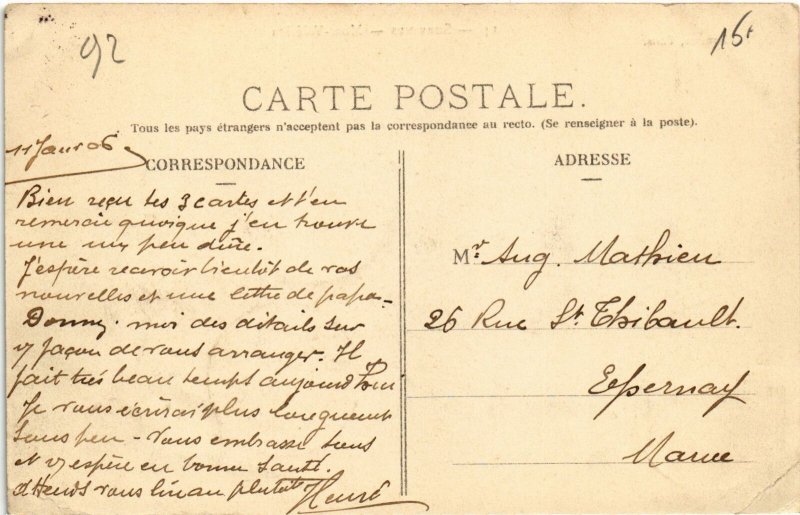 92
15f
CARTE POSTALE.
Tous les pays étrangers n'acceptent pas la correspondance au recto. (Se renseigner à la poste).
11 Janv 06
CORRESPONDANCE
Bien reçu tes 3 cartes et t'en
remercie quoique j'en trouve
une un peu dure.
J'espère recevoir bientôt de vos
nouvelles et une lettre de papa.
Donnez-moi des détails sur
v/ façon de vous arranger. Il
fait très beau temps aujourd'hui
Je vous écrirai plus longuement
sous peu - Vous embrasse tous
et v/ espère en bonne santé.
attends vous plutôt
Henri
ADRESSE
Mr. Aug. Mathieu
26 Rue St. Thibault.
Epernay
Marne